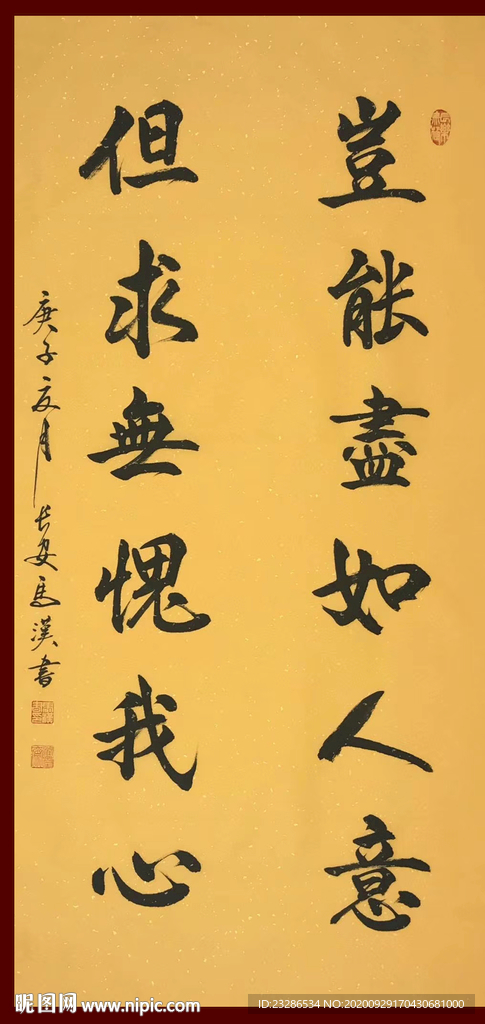 豈能盡如人意
但求無愧我心
庚子夏月長安馬漢書
昵图网 www.nipic.com
ID:23286534 NO:20200929170430681000